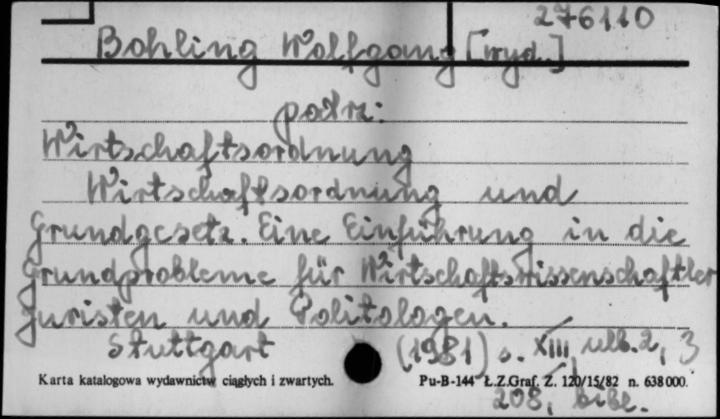 276110
Bohling Wolfgang [wyd.]
patrz:
Wirtschaftsordnung
Wirtschaftsordnung und
Grundgesetz. Eine Einführung in die
Grundprobleme für Wirtschaftswissenschaftler
Juristen und Politologen.
Stuttgart (1981) s. XIII, ulb. 2, 3
Karta katalogowa wydawnictw ciągłych i zwartych. Pu-B-144 Ł.Z.Graf. Z. 120/15/82 n. 638 000.
208, bibl.